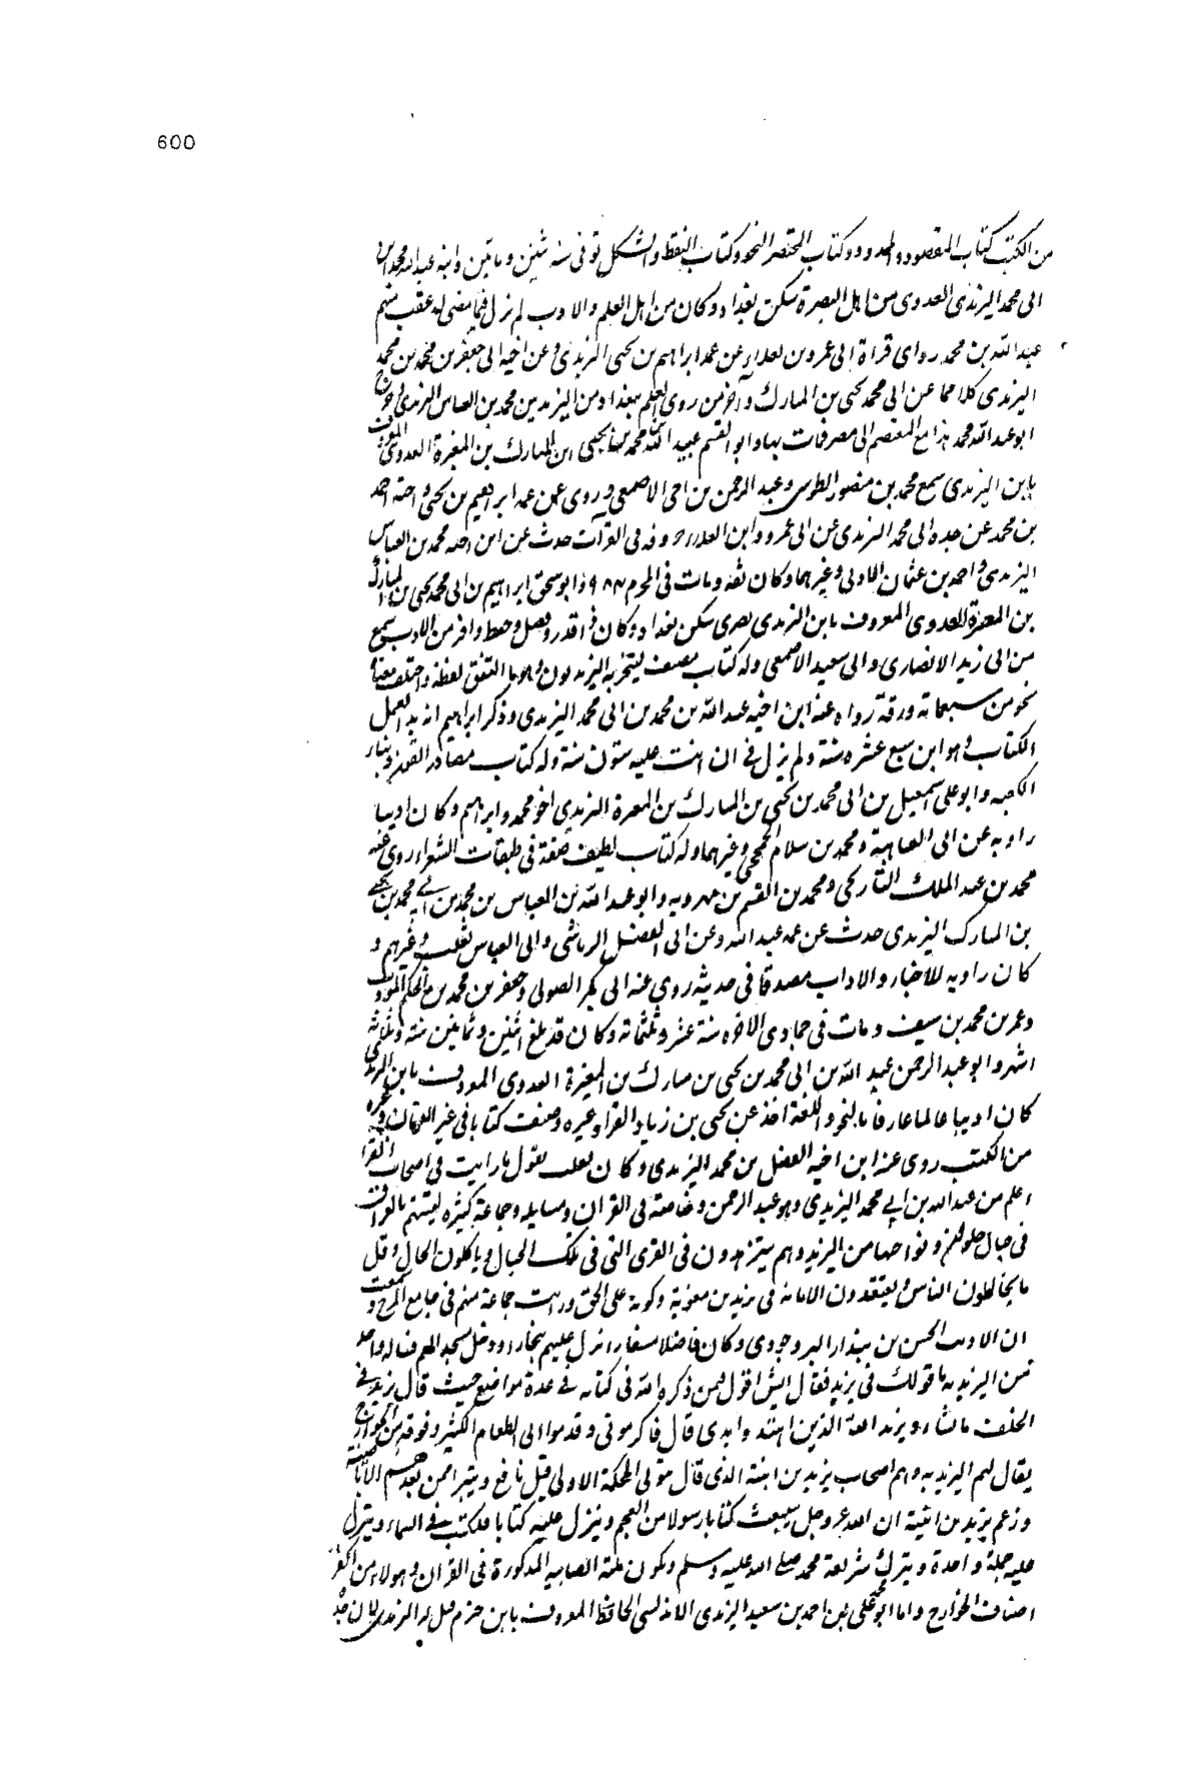 600
من الكتب كتاب المقصور والممدود وكتاب المختصر النحو وكتاب النقط والشكل توفى سنة ثنتين ومايتين وابنه عبد الله محمد بن
ابى محمد اليزيدى العدوى من اهل البصرة سكن بغداد وكان من اهل العلم والادب لم نزل فيما مضى له عقب منهم
عبد الله بن محمد روى قراة ابى عمرو بن العلاء عن عمه ابراهيم بن يحيى اليزيدى وعن اخيه ابى جعفر بن محمد بن محمد
اليزيدى كلاهما عن ابى محمد يحيى بن المبارك وآخر من روى العلم ببغداد من اليزيديين محمد بن العباس اليزيدى وخرج
ابو عبد الله محمد هذا مع المعتصم الى مصر فمات بها وابو القسم عبيد الله بن محمد بن يحيى ابن المبارك بن المغيرة العدوى المعروف
بابن اليزيدى سمع محمد بن منصور الطوسى وعبد الرحمن بن اخى الاصمعى وروى عن عمه ابراهيم بن يحيى واخيه احمد
بن محمد عن جده ابى محمد اليزيدى عن ابى عمرو ابن العلاء حروفه فى القرآت حدث عن ابن اخيه محمد بن العباس
اليزيدى واحمد بن عثمان الادمى وغيرهما وكان ثقة ومات فى المحرم وابو اسحق ابراهيم بن ابى محمد يحيى بن المبارك
بن المغيرة العدوى المعروف بابن اليزيدى بصرى سكن بغداد وكان ذا قدر وفضل وحظ وافر من الادب سمع
من ابى زيد الانصارى وابى سعيد الاصمعى وله كتاب مصنف يفتخر به اليزيديون وهو ما اتفق لفظه واختلف معناه
نحو من سبعماية ورقة رواه عنه ابن اخيه عبد الله بن محمد بن ابى محمد اليزيدى وذكر ابراهيم انه بدا بعمل
الكتاب وهو ابن سبع عشره سنة ولم يزل فى ان اتت عليه ستون سنة وله كتاب مصادر القران وبناء
الكعبه وابو على اسمعيل بن ابى محمد بن يحيى بن المبارك بن المغيرة اليزيدى اخو محمد وابراهيم وكان اديبا
راويه عن ابى العتاهية ومحمد بن سلام الجمحى وغيرهما وله كتاب لطيف صنفه فى طبقات الشعراء روى عنه
محمد بن عبد الملك التاريخى ومحمد بن القسم بن مهرويه وابو عبد الله بن العباس بن محمد بن ابى محمد بن يحيى
بن المبارك اليزيدى حدث عن عمه عبيد الله وعن ابى الفضل الرياشى وابى العباس ثعلب وغيرهم و
كان راويه للاخبار والاداب مصدقا فى حديثه روى عنه ابى بكر الصولى وجعفر بن محمد بن الحكم المؤدب
وعمر بن محمد بن سيف ومات فى جمادى الاخره سنة عشر وثلثماية وكان قد بلغ اثنين وثمانين سنة وثلاثة
اشهر وابو عبد الرحمن عبد الله بن ابى محمد بن يحيى بن مبارك بن المغيرة العدوى المعروف بابن اليزيدى
كان اديبا عالما عارفا بالنحو واللغة اخذ عن يحيى بن زياد الفراء وغيره وصنف كتابا فى غريب القران وغيره
من الكتب روى عنه ابن اخيه الفضل بن محمد اليزيدى وكان ثعلب يقول ما رايت فى اصحاب الفرا
اعلم من عبد الله بن ابى محمد اليزيدى وهو عبد الرحمن وخاصة فى القران ومسايله وجماعة كثيره لقيتهم بالعراق
فى جبال حلوان ونواحيها من اليزيديه وهم يتزهدون فى القرى التى فى تلك الجبال وياكلون الحلال وقل
ما يخالطون الناس ويعتقدون الامامة فى يزيد بن معوية وكونه على الحق ورايت جماعة منهم فى جامع المرج وسمعت
ان الاديب الحسن بن بندار البروجردى وكان فاضلا سفارا نزل عليهم مجتازا ودخل مسجدا لهم فساله واحد
من اليزيديه ما قولك فى يزيد فقال ايش اقول فيمن ذكره الله فى كتابه فى عدة مواضع حيث قال يزيد فى
الخلق ما يشاء ويزيد الله الذين اهتدوا هدى قال فاكرمونى وقدموا الى الطعام الكثير وفرقة من الخوارج
يقال لهم اليزيديه وهم اصحاب يزيد بن انيسة الذى قال بتولى المحكمة الاولى قبل نافع وتبرا ممن بعدهم الا الاباضية
وزعم يزيد بن انيسة ان الله عز وجل سيبعث رسولا من العجم وينزل عليه كتابا قد كتب فى السماء وينزل
عليه جملة واحدة ويترك شريعة محمد صلى الله عليه وسلم ويكون ملة الصابيه المذكورة فى القران وهولاء من اكفر
اصناف الخوارج واما ابو محمد على بن احمد بن سعيد اليزيدى الاندلسى الحافظ المعروف بابن حزم قيل له اليزيدى لان جد